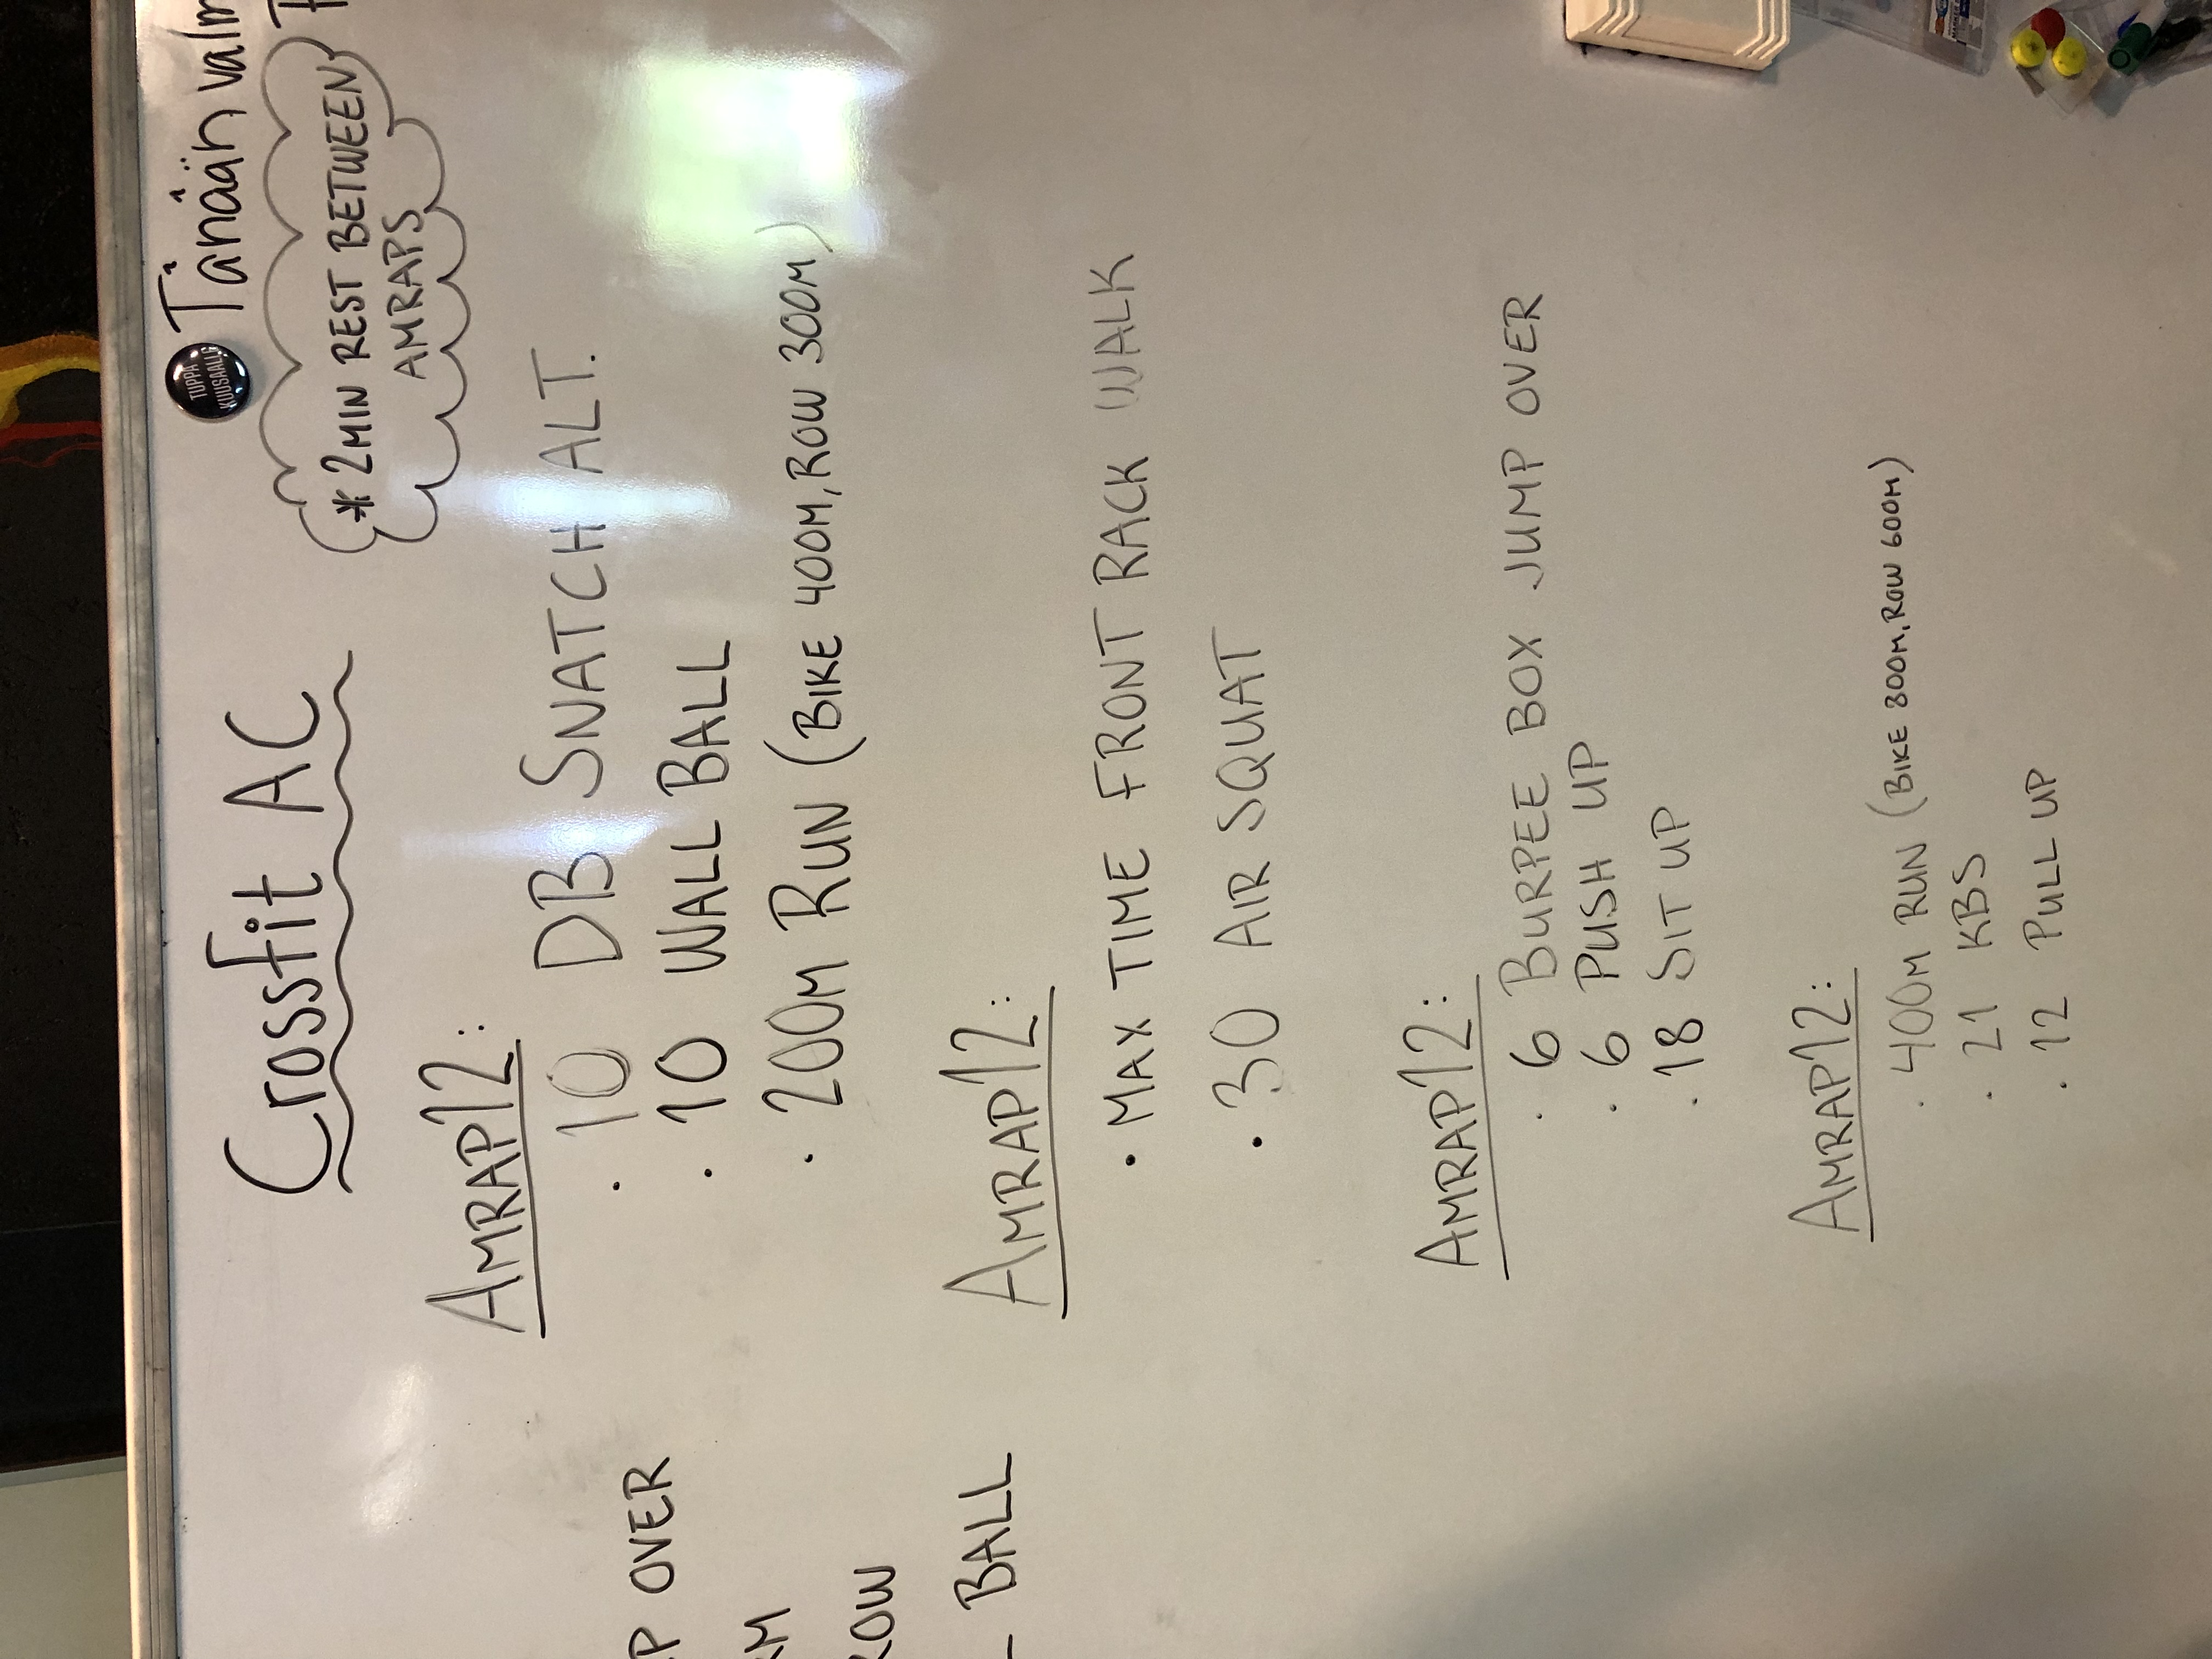 Crossfit AC
Tänään
TUPPA
KUUSAALLE
* 2MIN REST BETWEEN
AMRAPS
AMRAP12:
· 10 DB SNATCH ALT.
· 10 WALL BALL
· 200M RUN (BIKE 400M, ROW 300M)
AMRAP12:
· MAX TIME FRONT RACK WALK
· 30 AIR SQUAT
AMRAP12:
· 6 BURPEE BOX JUMP OVER
· 6 PUSH UP
· 18 SIT UP
AMRAP12:
· 400M RUN (BIKE 800M, ROW 600M)
· 21 KBS
· 12 PULL UP
P OVER
ROW
- BALL